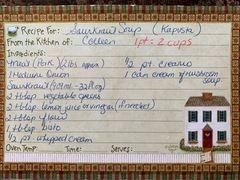 Recipe For: Saurkraut Soup (Kapusta)
From the Kitchen of: Colleen 1pt = 2 cups
Ingredients:
Meat (Pork) (2 lbs) ½ pt. cream
1 Medium Onion 1 can cream of mushroom soup.
Saurkraut
2 tblsp. vegetable
2 tblsp. lemon juice or vinegar (if needed)
2 tblsp flour
1 tblsp
½ pt. whipped cream
Oven Temp: Time: Serves: